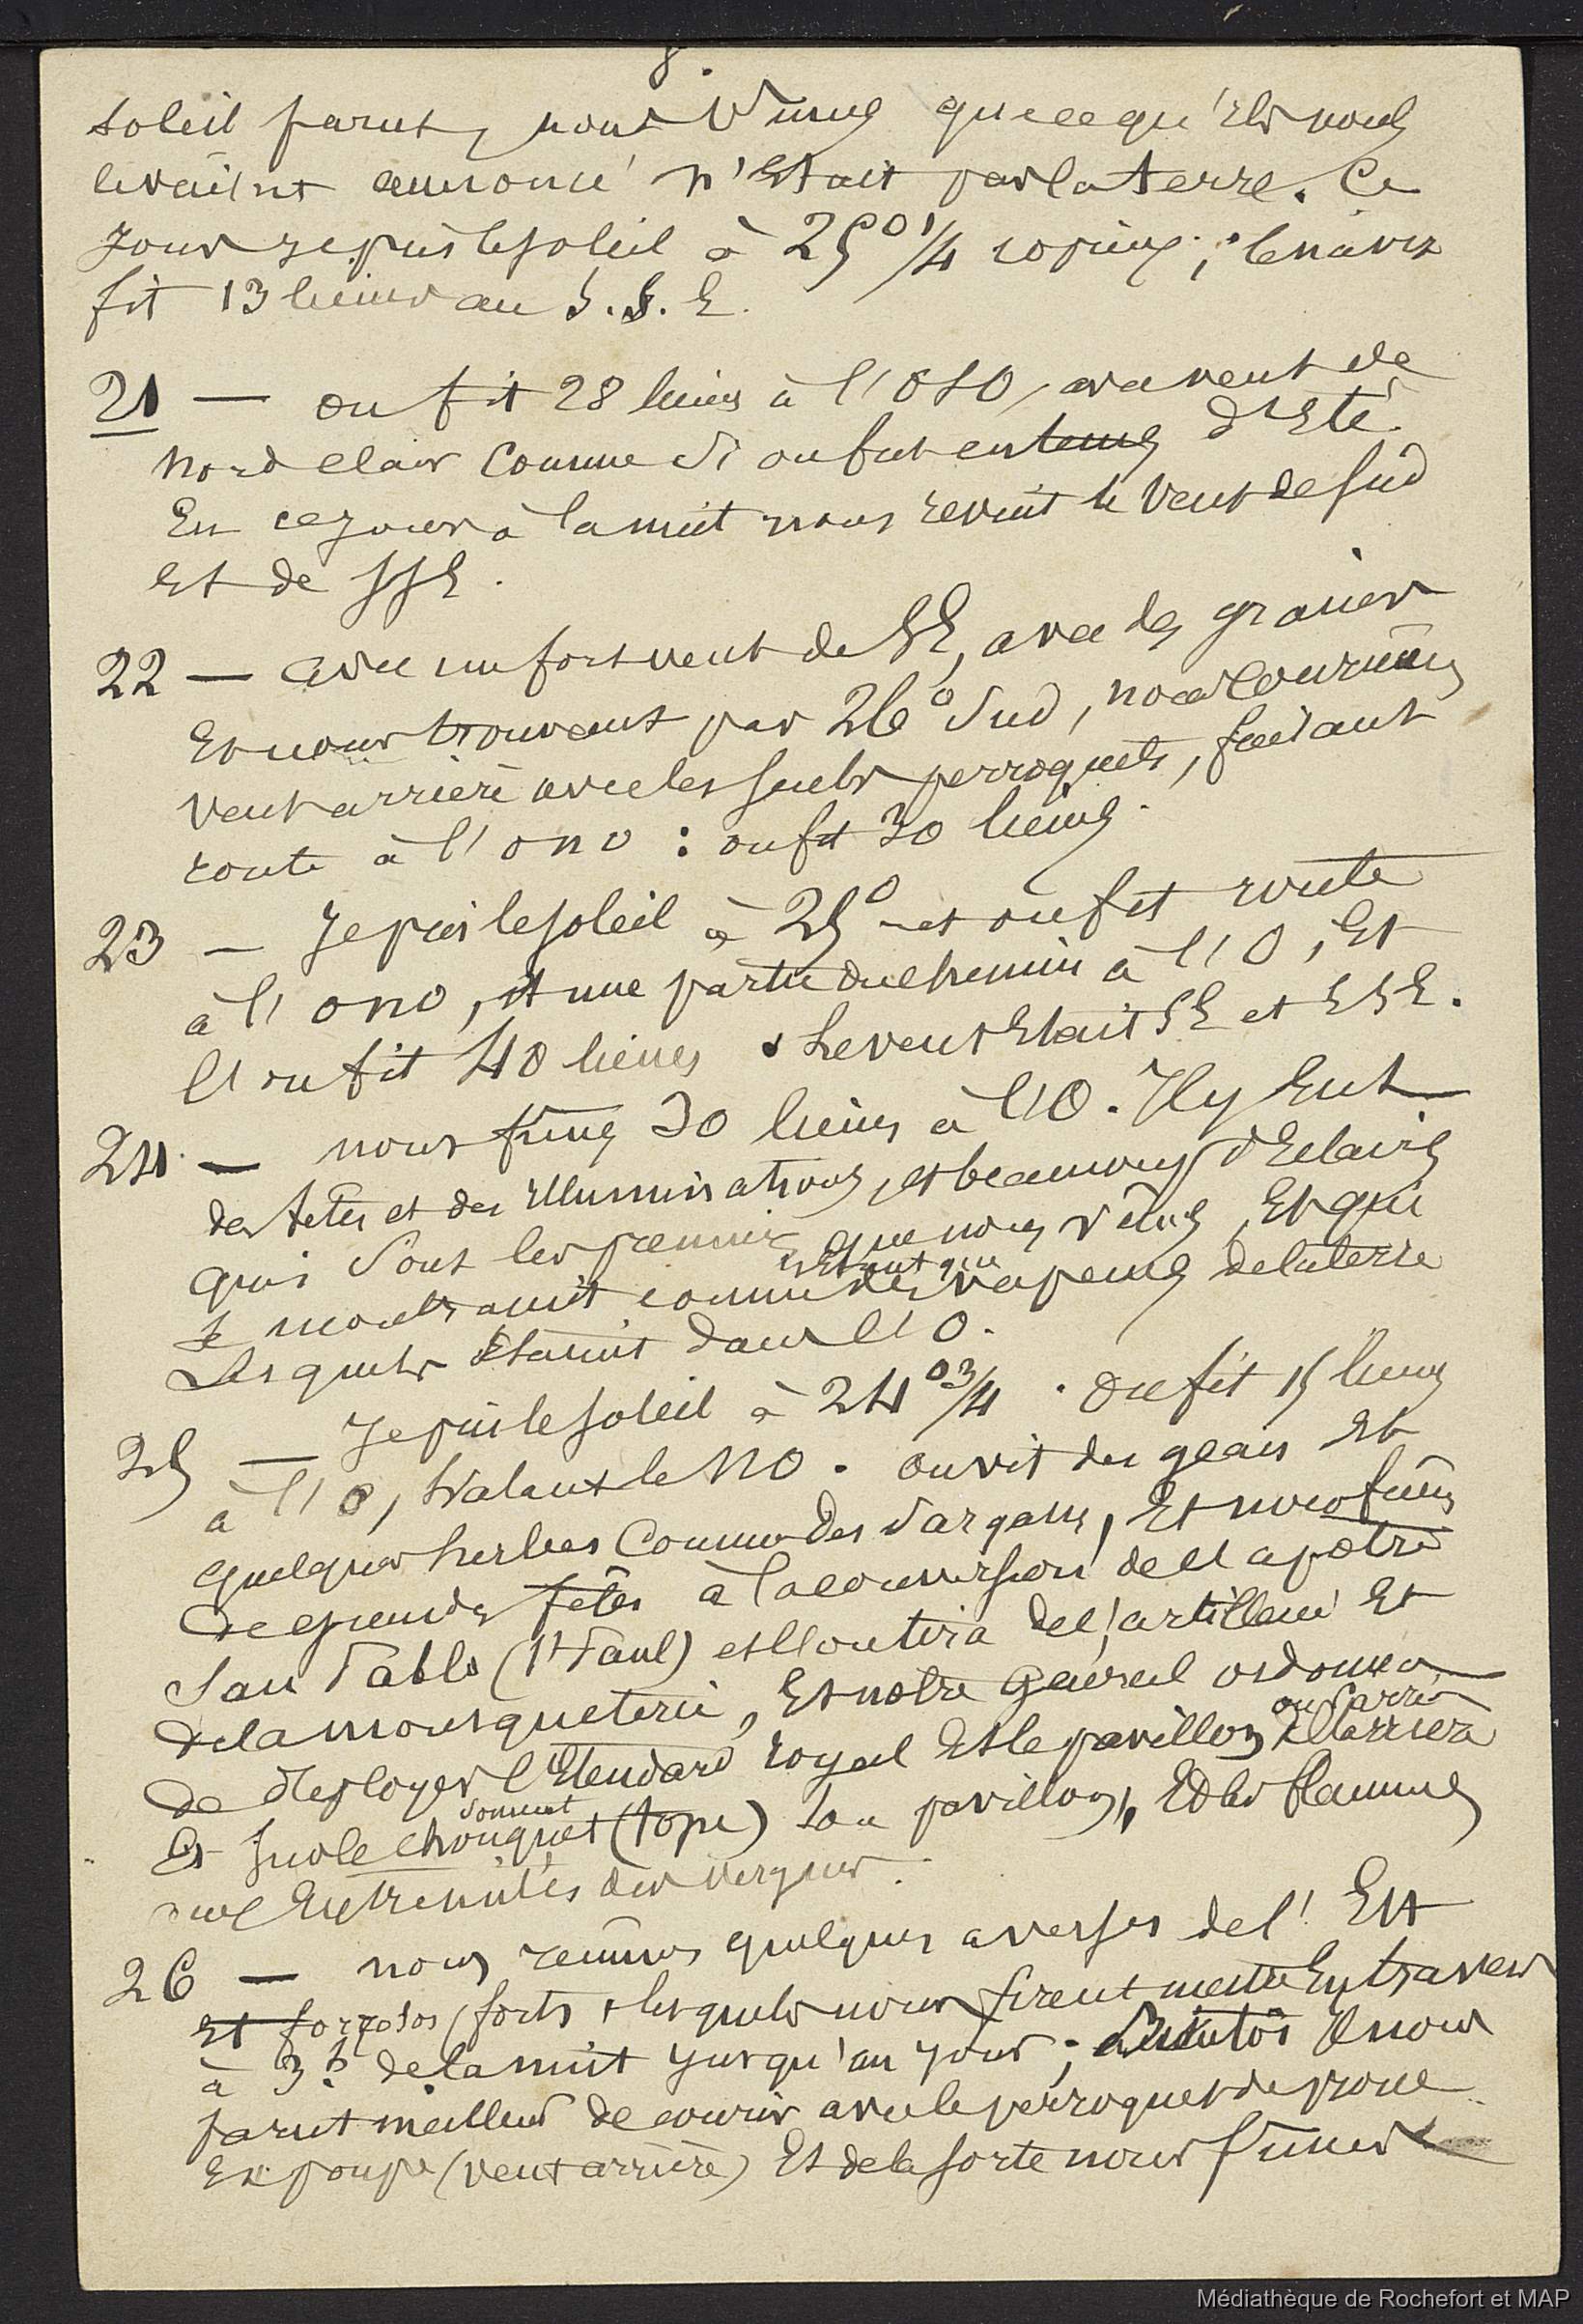 8.
soleil parut, nous vîmes que ce qu'ils nous
avaient annoncé n'était pas la terre. Ce
jour je pris le soleil à 25° 1/4 ; le navire
fit 13 lieues au S.S.E.
21 — on fit 28 lieues à l'OSO, avec vent de
nord clair comme si on fut en temps d'Eté.
En ce jour à la nuit nous revint le vent de sud
Et de SSE.
22 — avec un fort vent de SE, avec des grains
Et nous trouvant par 26° Sud, nous courumes
vent arrière avec les seuls perroquets, faisant
route à l'ONO : on fit 30 lieues.
23 — Je pris le soleil à 25° et on fit route
à l'ONO, et une partie du chemin à l'O, Et
Et on fit 40 lieues. Le vent Etait SE et ESE.
24 — nous fîmes 30 lieues à l'O. Il y Eut
des fêtes et des illuminations, et beaucoup d'Eclairs
qui sont les premiers que nous vîmes, Et qui
n'Etant que
se montraient comme des vapeurs de la terre
Lesquels Etaient dans l'O.
25 — Je pris le soleil à 24° 3/4. On fit 15 lieues
à l'O, halant le NO. On vit des geais Et
quelques herbes comme des sargasses, Et nous fîmes
de grandes fêtes à la conversion de l'apôtre
San Pablo (St Paul) et l'on tira de l'artillerie Et
de la mousqueterie, Et notre General ordonna
ou d'arrière
de deployer l'Etendard royal Et le pavillon
sommet
Et sur le chouquet (tope) son pavillon, Et les flammes
aux Extrémités des vergues.
26 — nous reçûmes quelques averses de l'Est
Et forçosos (forts) lesquels nous firent mettre En travers
à 3h. de la nuit jusqu'au jour ; Il nous
parut meilleur de courir avec le perroquet de proue
En poupe (vent arrière) Et de la sorte nous fûmes
Médiathèque de Rochefort et MAP